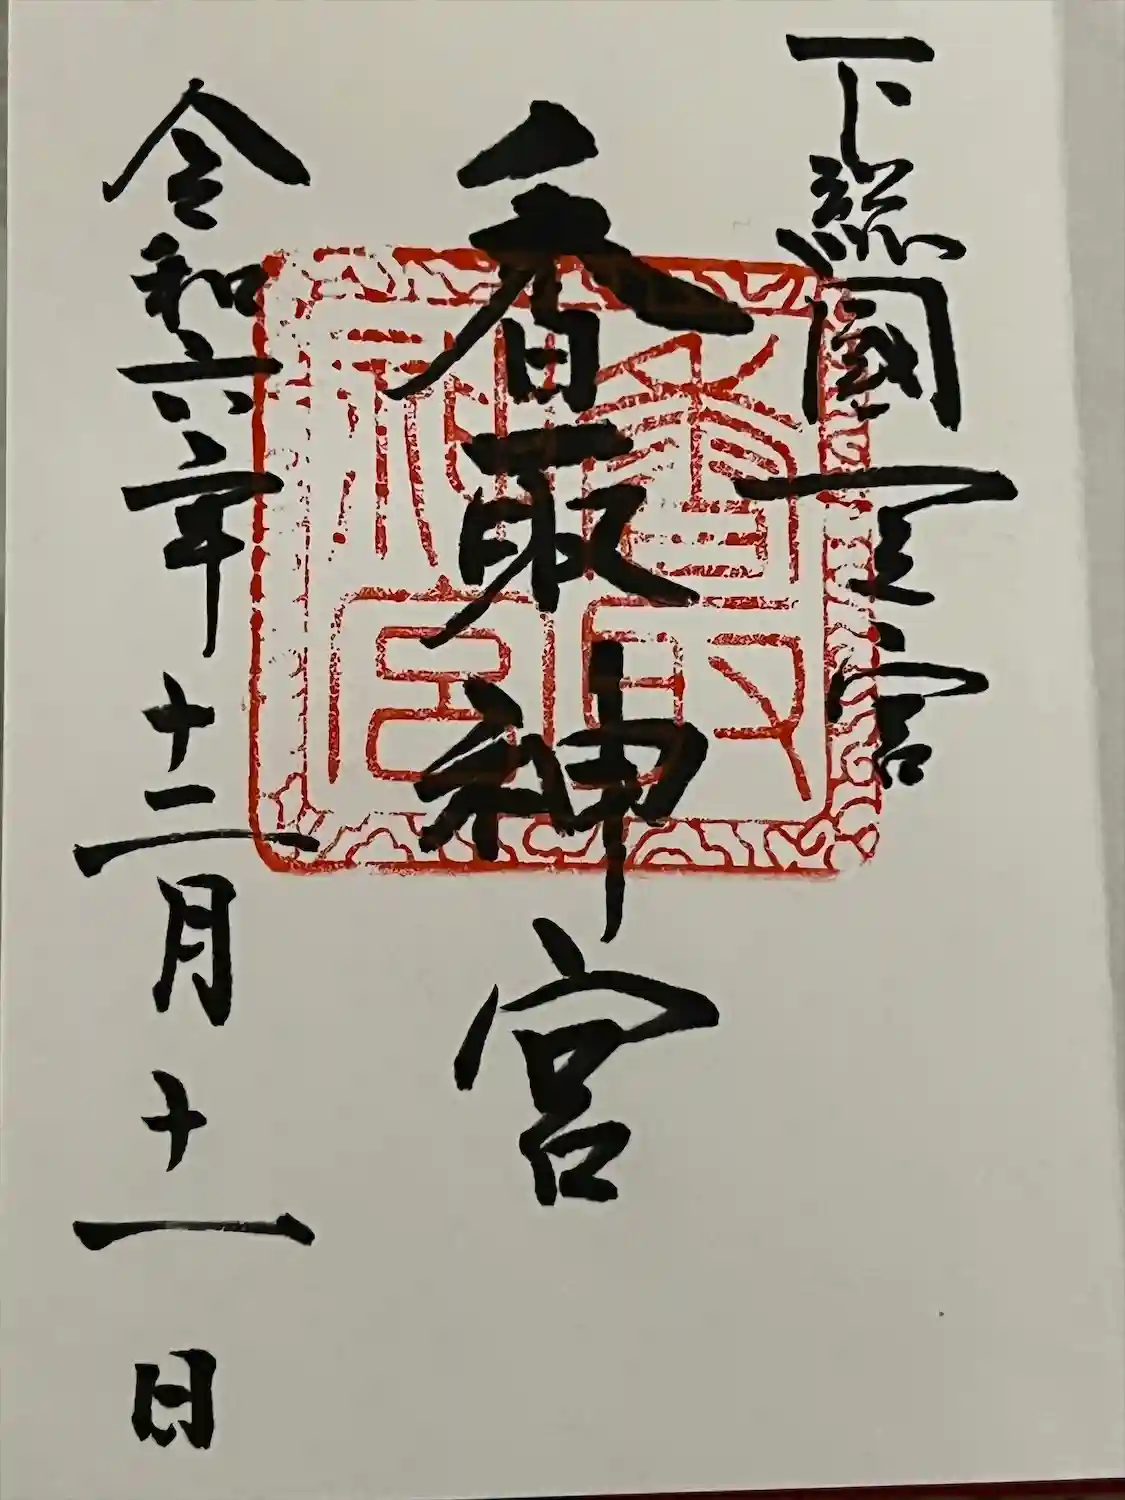 下総國一之宮
香取神宮
令和六年十二月十一日
香取
神宮